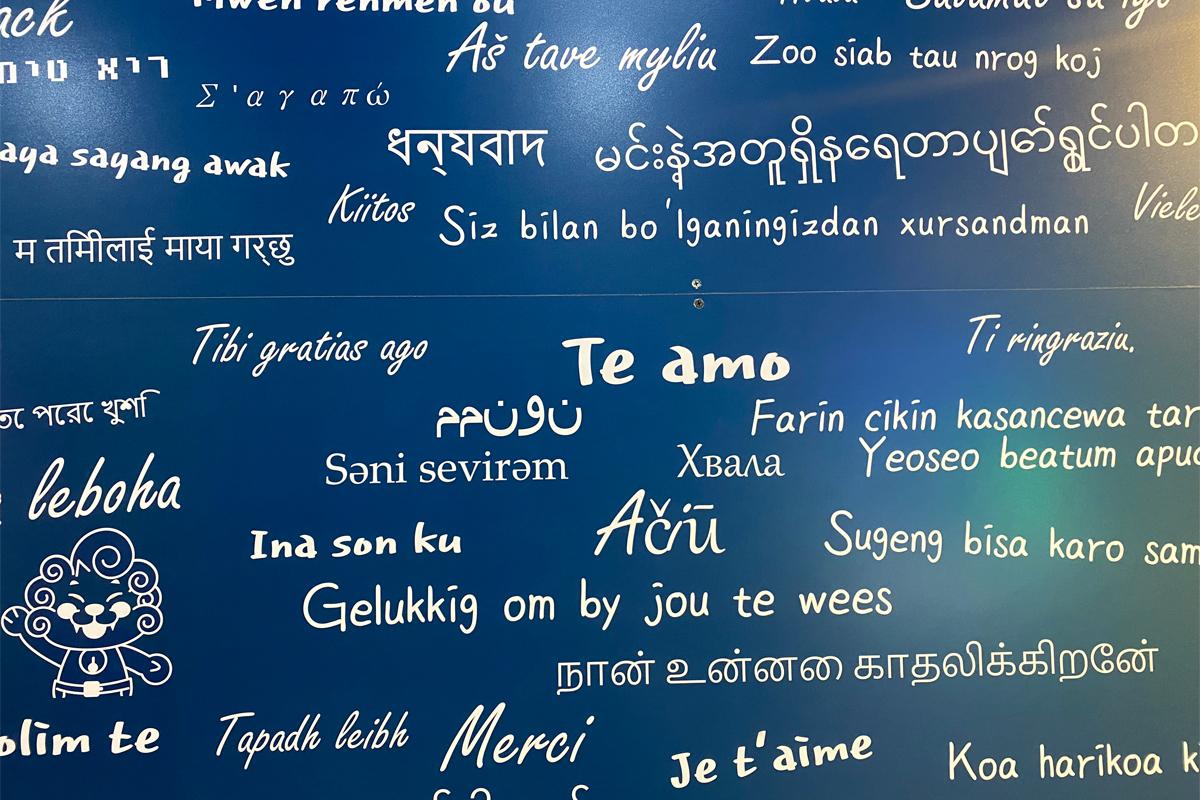 Mwen renmen ou
Aš tave myliu
Zoo siab tau nrog koj
Σ'αγαπώ
ধন্যবাদ
မင်းနဲ့အတူရှိနေရတာပျော်ရွှင်ပါတ
aya sayang awak
Kiitos
Siz bilan bo'lganingizdan xursandman
म तमिीलाई माया गर्छु
Tibi gratias ago
Te amo
Ti ringraziu.
পেরে খুশি
نونمم
Farin cikin kasancewa tar
Səni sevirəm
Хвала
Yeoseo beatum apud
leboha
Ina son ku
Ačiū
Sugeng bisa karo sam
Gelukkig om by jou te wees
நான் உன்னை காதலிக்கிறேன்
olim te
Tapadh leibh
Merci
Je t'aime
Koa harikoa k